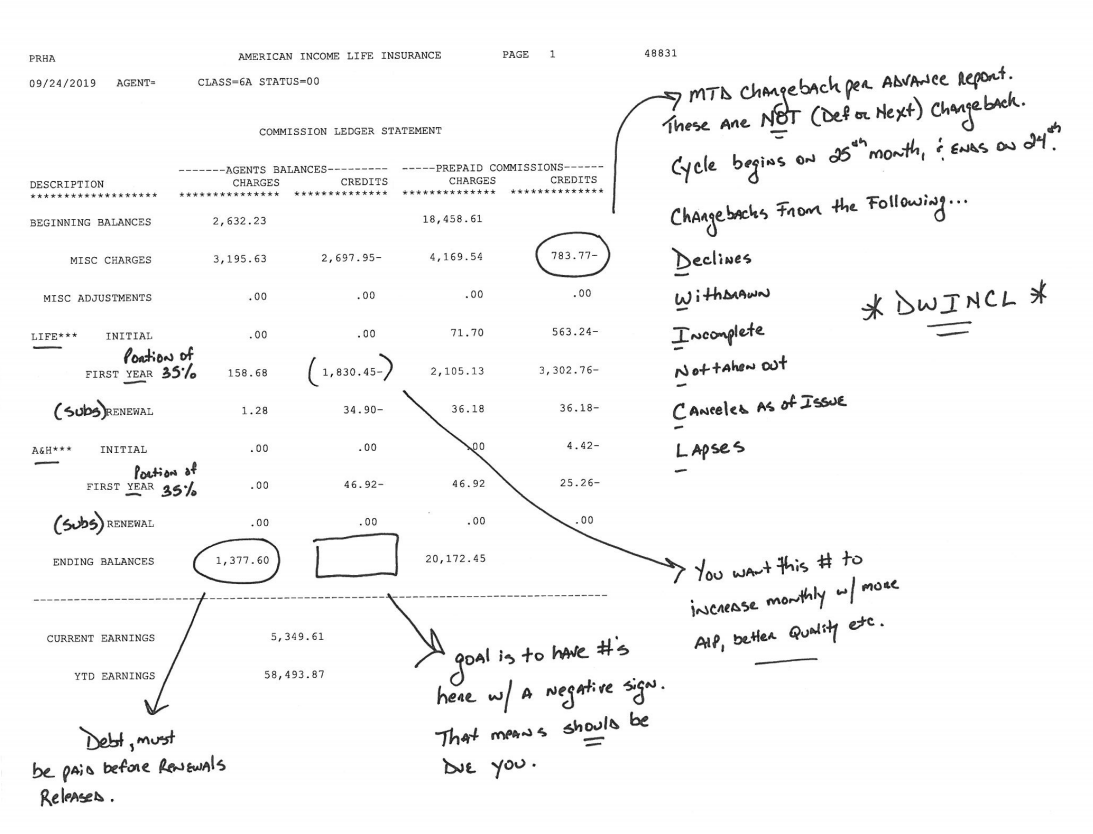 PRHA AMERICAN INCOME LIFE INSURANCE PAGE 1 48831
09/24/2019 AGENT= CLASS=6A STATUS=00
COMMISSION LEDGER STATEMENT
-------AGENTS BALANCES--------- -----PREPAID COMMISSIONS------
DESCRIPTION CHARGES CREDITS CHARGES CREDITS
******************* *************** ************** *************** **************
BEGINNING BALANCES 2,632.23 18,458.61
MISC CHARGES 3,195.63 2,697.95- 4,169.54 783.77-
MISC ADJUSTMENTS .00 .00 .00 .00
LIFE*** INITIAL .00 .00 71.70 563.24-
Portion of
FIRST YEAR 35% 158.68 (1,830.45-) 2,105.13 3,302.76-
(Subs) RENEWAL 1.28 34.90- 36.18 36.18-
A&H*** INITIAL .00 .00 .00 4.42-
Portion of
FIRST YEAR 35% .00 46.92- 46.92 25.26-
(Subs) RENEWAL .00 .00 .00 .00
ENDING BALANCES 1,377.60 20,172.45
CURRENT EARNINGS 5,349.61
YTD EARNINGS 58,493.87
MTD Chargeback per Advance Report.
These are NOT (Def or Next) Chargeback.
Cycle begins on 25th month, & ends on 24th.
Chargebacks From the Following...
Declines
Withdrawn
Incomplete
Not taken out
Canceled As of Issue
Lapses
* DWINCL *
You want this # to
increase monthly w/ more
AIP, better Quality etc.
goal is to have #'s
here w/ a negative sign.
That means should be
Due you.
Debt, must
be paid before Renewals
Released.